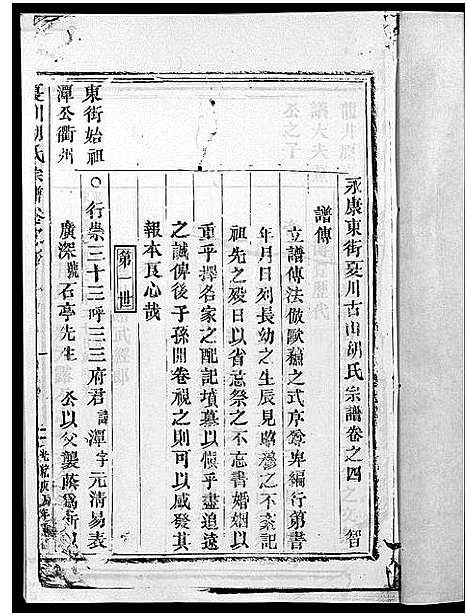 永康東街夏川古山胡氏宗譜卷之四 智
譜傳
立譜傳法倣歐蘇之式序尊卑編行第書
年月日列長幼之生辰見昭穆之不紊記
祖先之歿日以省忌祭之不忘書婚姻以
重乎擇名家之配記墳墓以慎乎盡追遠
之誠俾後子孫開卷視之則可以感發其
報本良心哉
第一世
東街始祖 ○行崇三十三呼三三府君諱潭字元清易表
潭公衢州 廣深號石亭先生 公以父襲蔭爲
夏川胡氏宗譜卷之